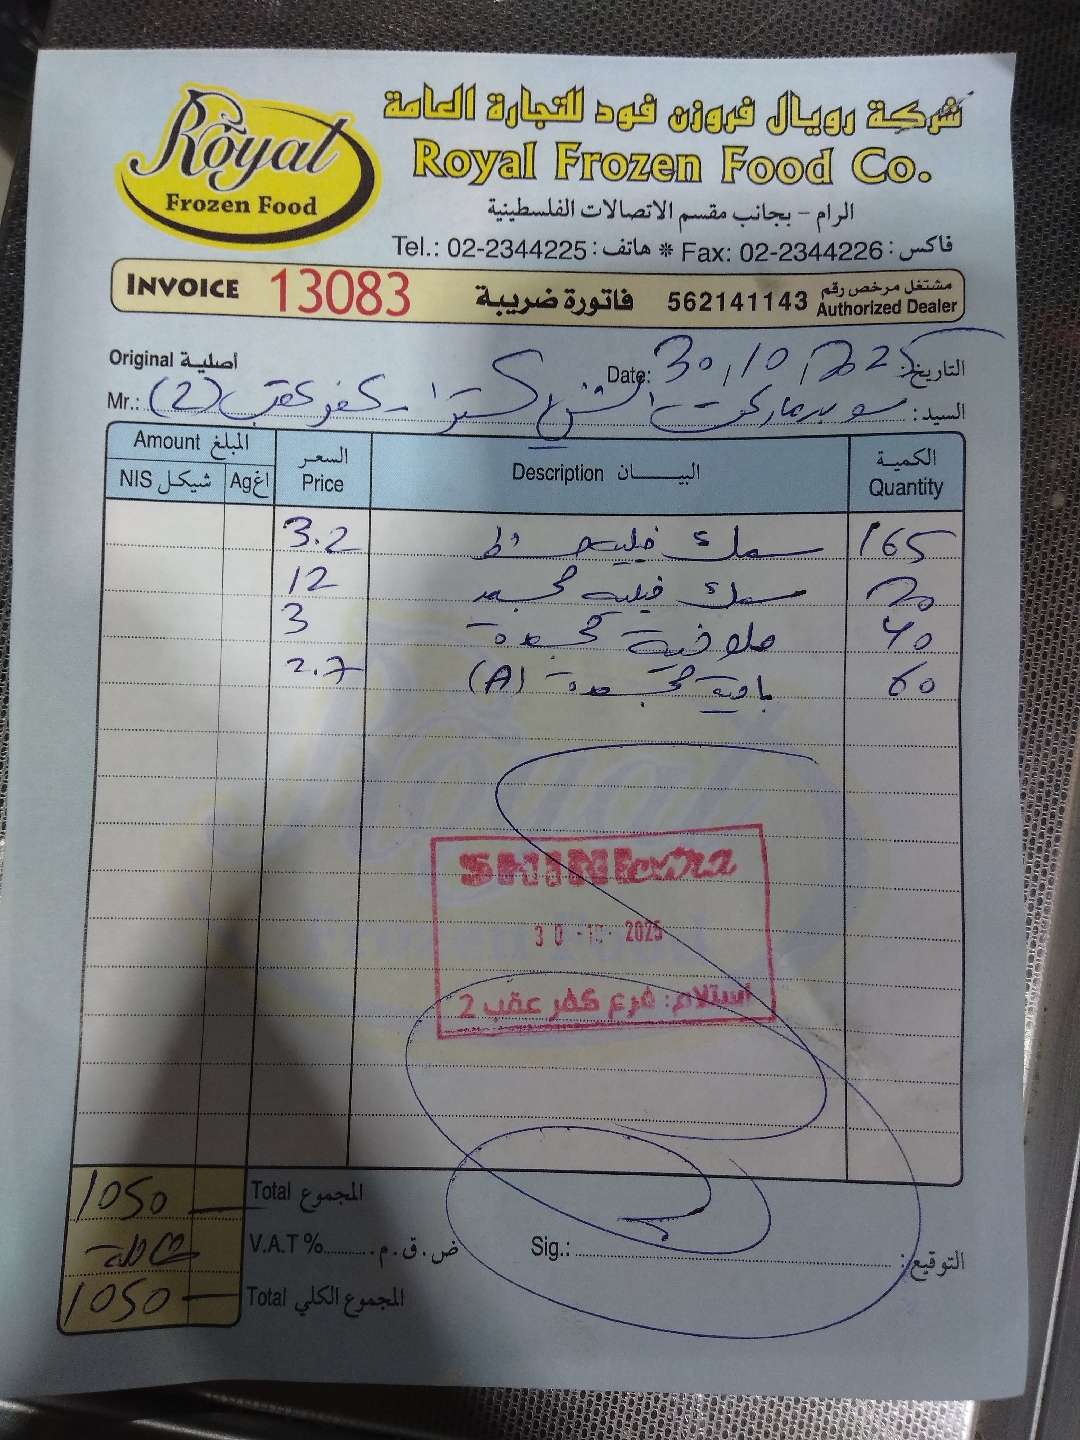 Royal
Frozen Food
شركة رويال فروزن فود للتجارة العامة
Royal Frozen Food Co.
الرام - بجانب مقسم الاتصالات الفلسطينية
Tel.: 02-2344225 : هاتف * Fax: 02-2344226 : فاكس
INVOICE 13083 فاتورة ضريبة 562141143 مشتغل مرخص رقم Authorized Dealer
Original أصلية
Date: 30,10,2025 التاريخ:
Mr.: سوبرماركت الشني اكسترا - كفر عقب (2) السيد:
Amount المبلغ
NIS شيكل Ag اغ
السعر Price
Description البيـــان
الكمية Quantity
3.2 سمك فليه 165
12 سمك فيليه مجمد 20
3 ملوخية مجمدة 40
2.7 بامية مجمدة (A) 60
SHINI extra
30 -10- 2025
استلام: فرع كفر عقب 2
1050 Total المجموع
V.A.T % ض.ق.م. شاملة
1050 Total المجموع الكلي
Sig.: التوقيع: